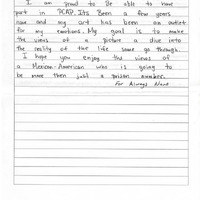 I am proud to be able to have
part in PCAP. Its Been a few years
now and my art has been an outlet
for my emotions. My goal is to make
the views of a picture a dive into
the reality of the life some go through.
I hope you enjoy the views of
a Mexican-American who is going to
be more then just a prison number.
For Always Alone